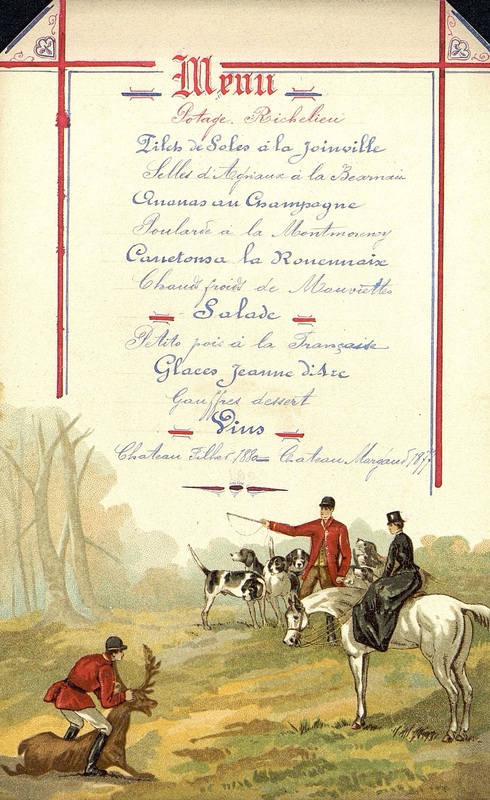 Menu
Potage. Richelieu
Filets de Soles à la Joinville
Selles d'Agneaux à la Bearnais
Ananas au Champagne
Poularde à la Montmorency
Canetons a la Rouennaise
Chaud froids de Mauviettes
Salade
Petits pois à la Française
Glaces Jeanne d'Arc
Gauffres dessert
Vins
Chateau Filhot Chateau Margaux